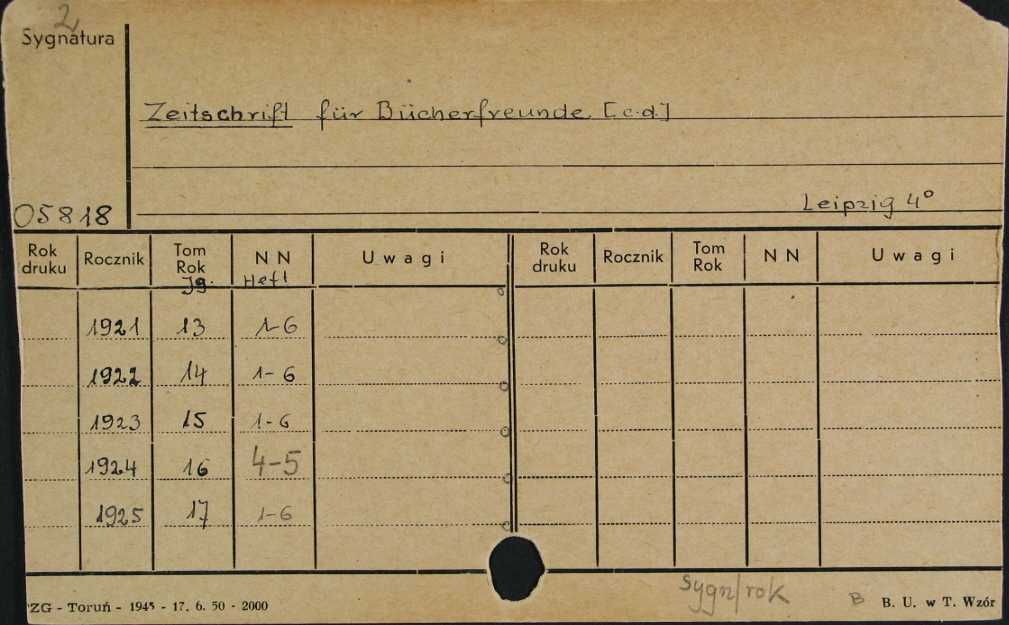 2
Sygnatura
Zeitschrift für Bücherfreunde [c.d.]
Leipzig 4°
05818
Rok druku Rocznik Tom Rok Jg. N N Heft Uwagi Rok druku Rocznik Tom Rok N N Uwagi
1921 13 1-6
1922 14 1-6
1923 15 1-6
1924 16 4-5
1925 17 1-6
Sygn/rok
ZG - Toruń - 1945 - 17. 6. 50 - 2000 B B. U. w T. Wzór